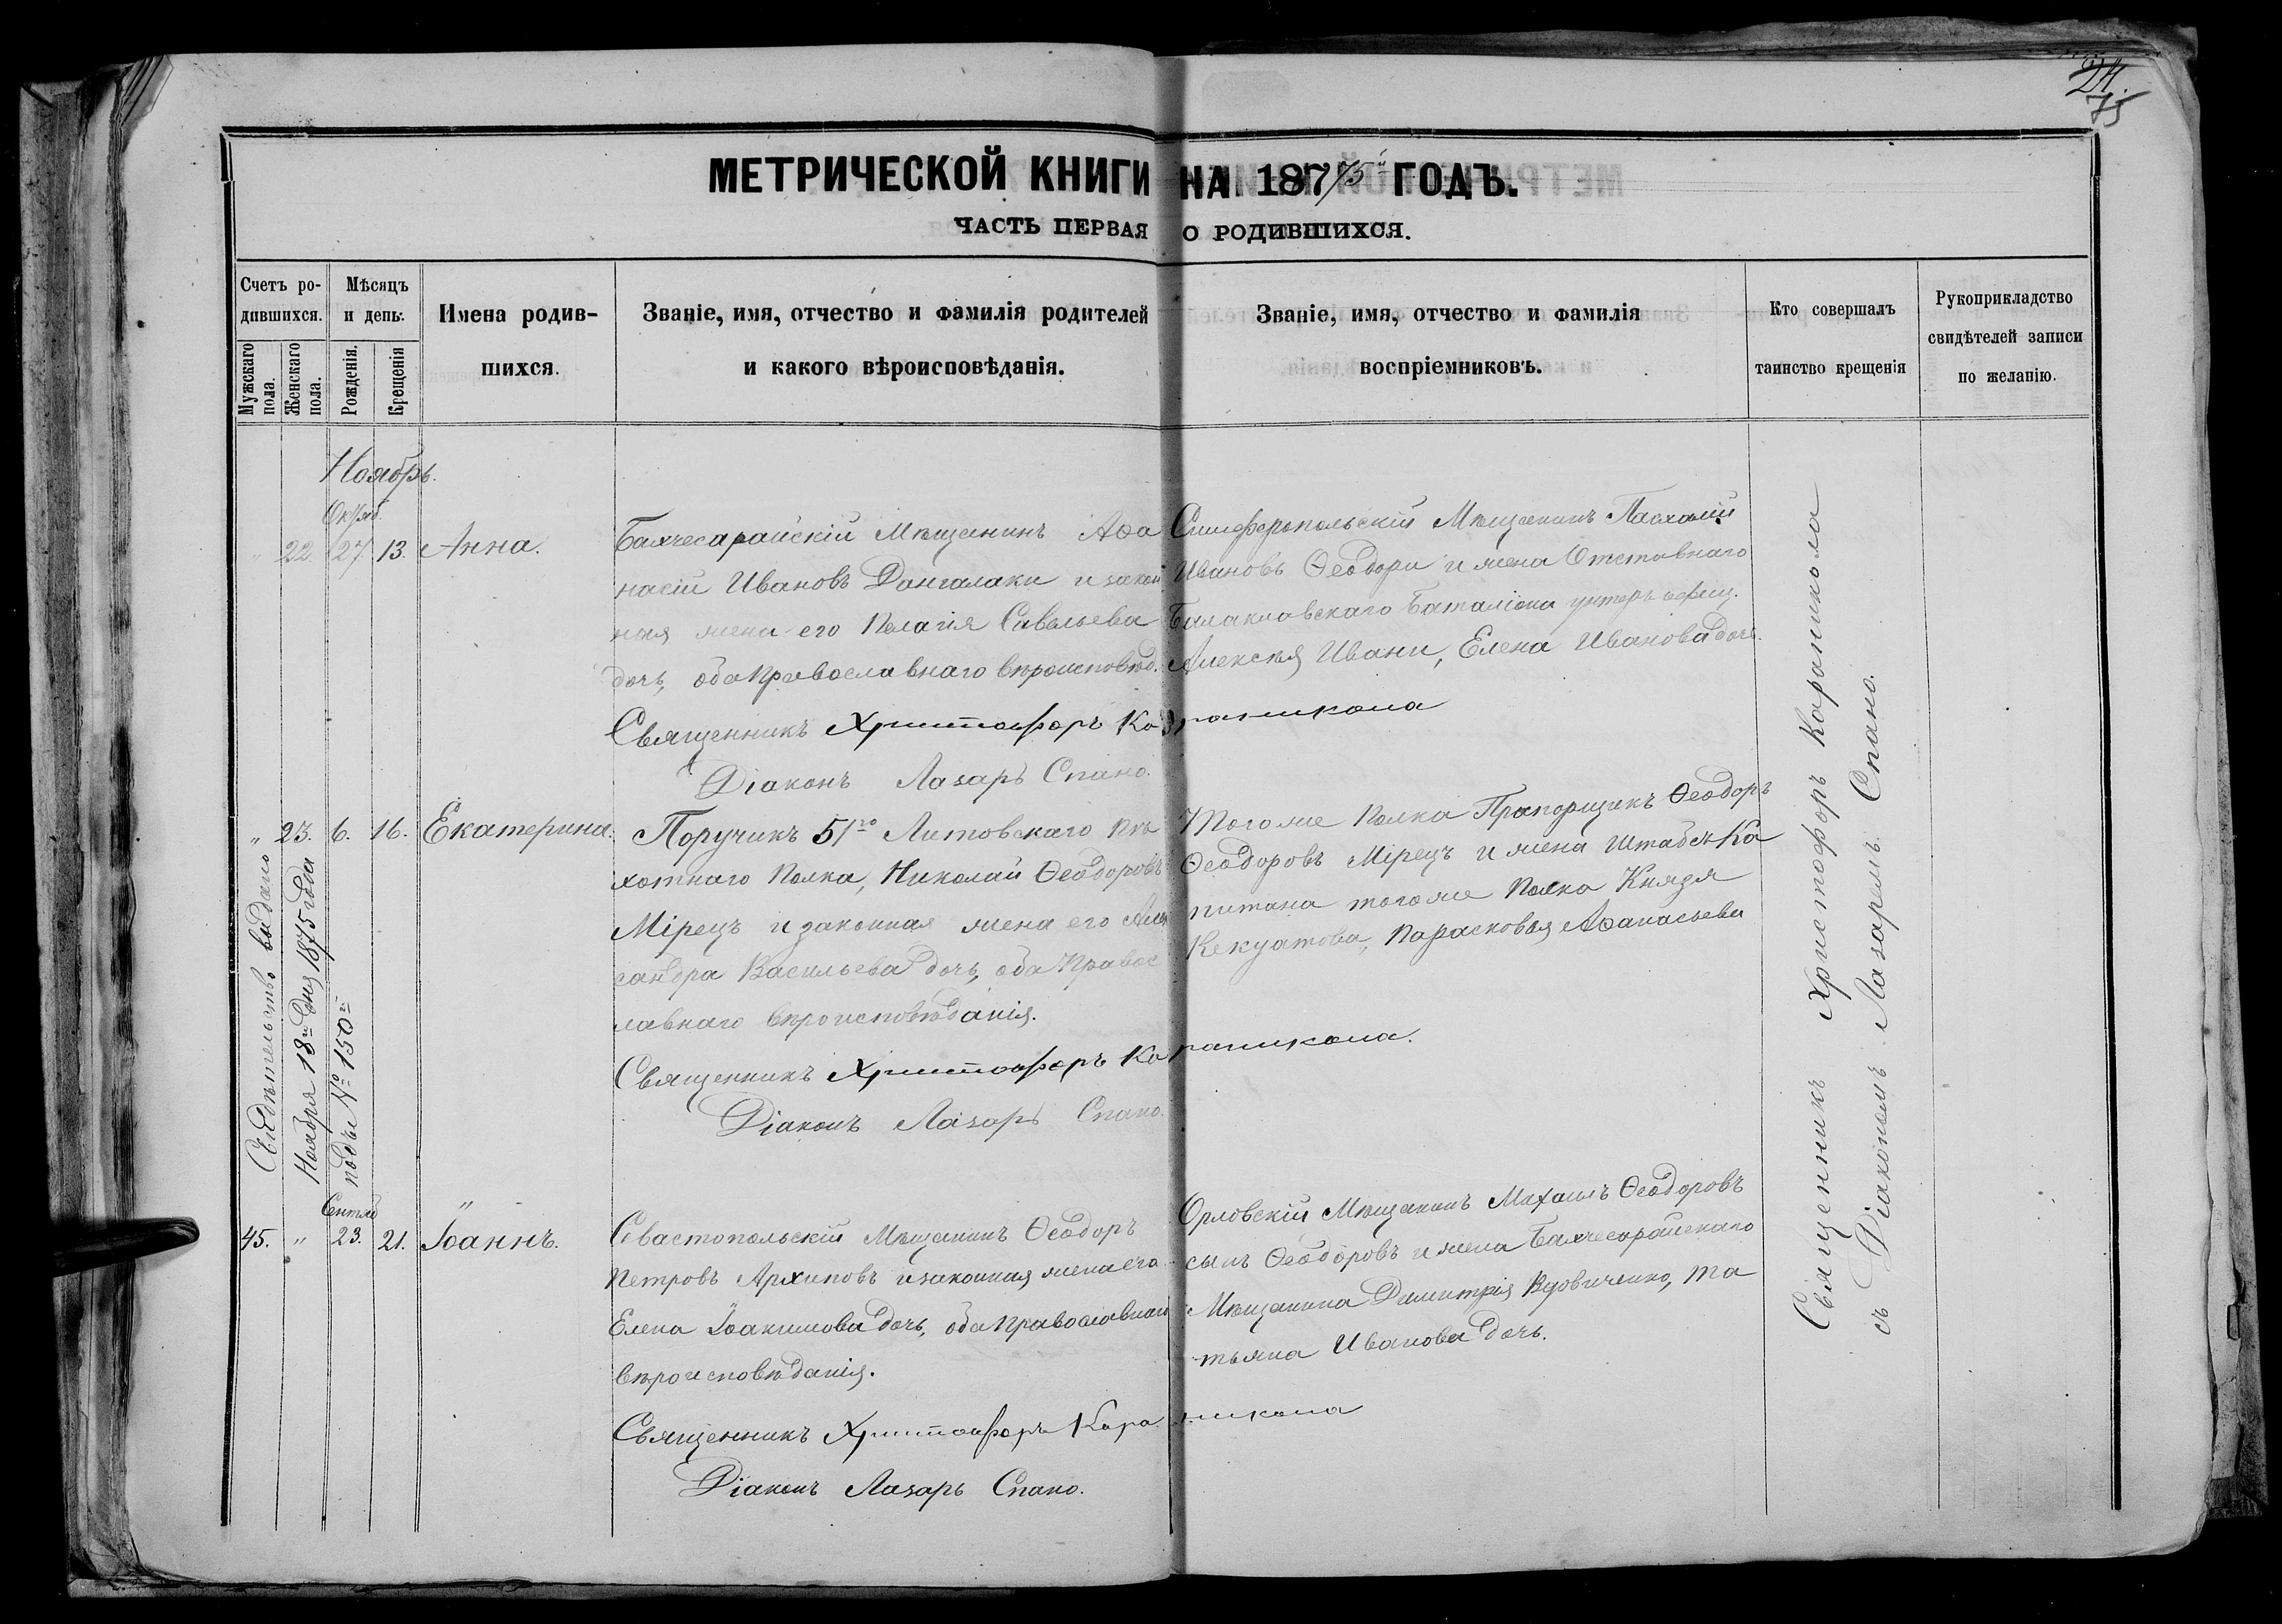 24.
75
МЕТРИЧЕСКОЙ КНИГИ НА 1875й ГОДЪ.
ЧАСТЬ ПЕРВАЯ О РОДИВШИХСЯ.
Счетъ ро-
дившихся.
Мужскаго пола.
Женскаго пола.
Мѣсяцъ
и день.
Рожденія.
Крещенія
Имена родив-
шихся.
Званіе, имя, отчество и фамилія родителей
и какого вѣроисповѣданія.
Званіе, имя, отчество и фамилія
воспріемниковъ.
Кто совершалъ
таинство крещенія
Рукоприкладство
свидѣтелей записи
по желанію.
Ноябрь.
Октяб.
" 22. 27. 13. Анна.
Бахчесарайскій Мѣщанинъ Аѳа
насій Ивановъ Донгалаки и закон
ная жена его Пелагія Савельева
дочь, оба православнаго вѣроисповѣд.
Симферопольскій Мѣщанинъ Пасхалій
Ивановъ Ѳеодори и жена Отставнаго
Балаклавскаго Баталіона унтеръ офиц.
Алексѣя Ивани, Елена Иванова дочь.
Священникъ Христофоръ Караникола
Діаконъ Лазарь Спано.
" 23. 6. 16. Екатерина.
Поручикъ 51го Литовскаго пѣ
хотнаго Полка, Николай Ѳеодоровъ
Мірецъ и законная жена его Алек
сандра Васильева дочь, оба Правос
лавнаго вѣроисповѣданія.
Того же Полка Прапорщикъ Ѳеодоръ
Ѳеодоровъ Мірецъ и жена Штабсъ Ка
питана того же Полка Князя
Кекуатова, Парасковья Аѳанасьева
Священникъ Христофоръ Караникола.
Діаконъ Лазарь Спано.
Свидѣтельство выдано
Ноября 18го дня 1875 года
подъ № 150м
Сентяб
45. " 23. 21. Іоаннъ.
Севастопольскій Мѣщанинъ Ѳеодоръ
Петровъ Архиповъ и законная жена его
Елена Іоакимова дочь, оба православнаго
вѣроисповѣданія.
Орловскій Мѣщанинъ Михаилъ Ѳеодоровъ
сынъ Ѳеодоровъ и жена Бахчесарайскаго
Мѣщанина Димитрія Вдовиченко, Та
тьяна Иванова дочь.
Священникъ Христофоръ Караникола
Діаконъ Лазарь Спано.
Священникъ Христофоръ Караникола
съ Діакономъ Лазаремъ Спано.